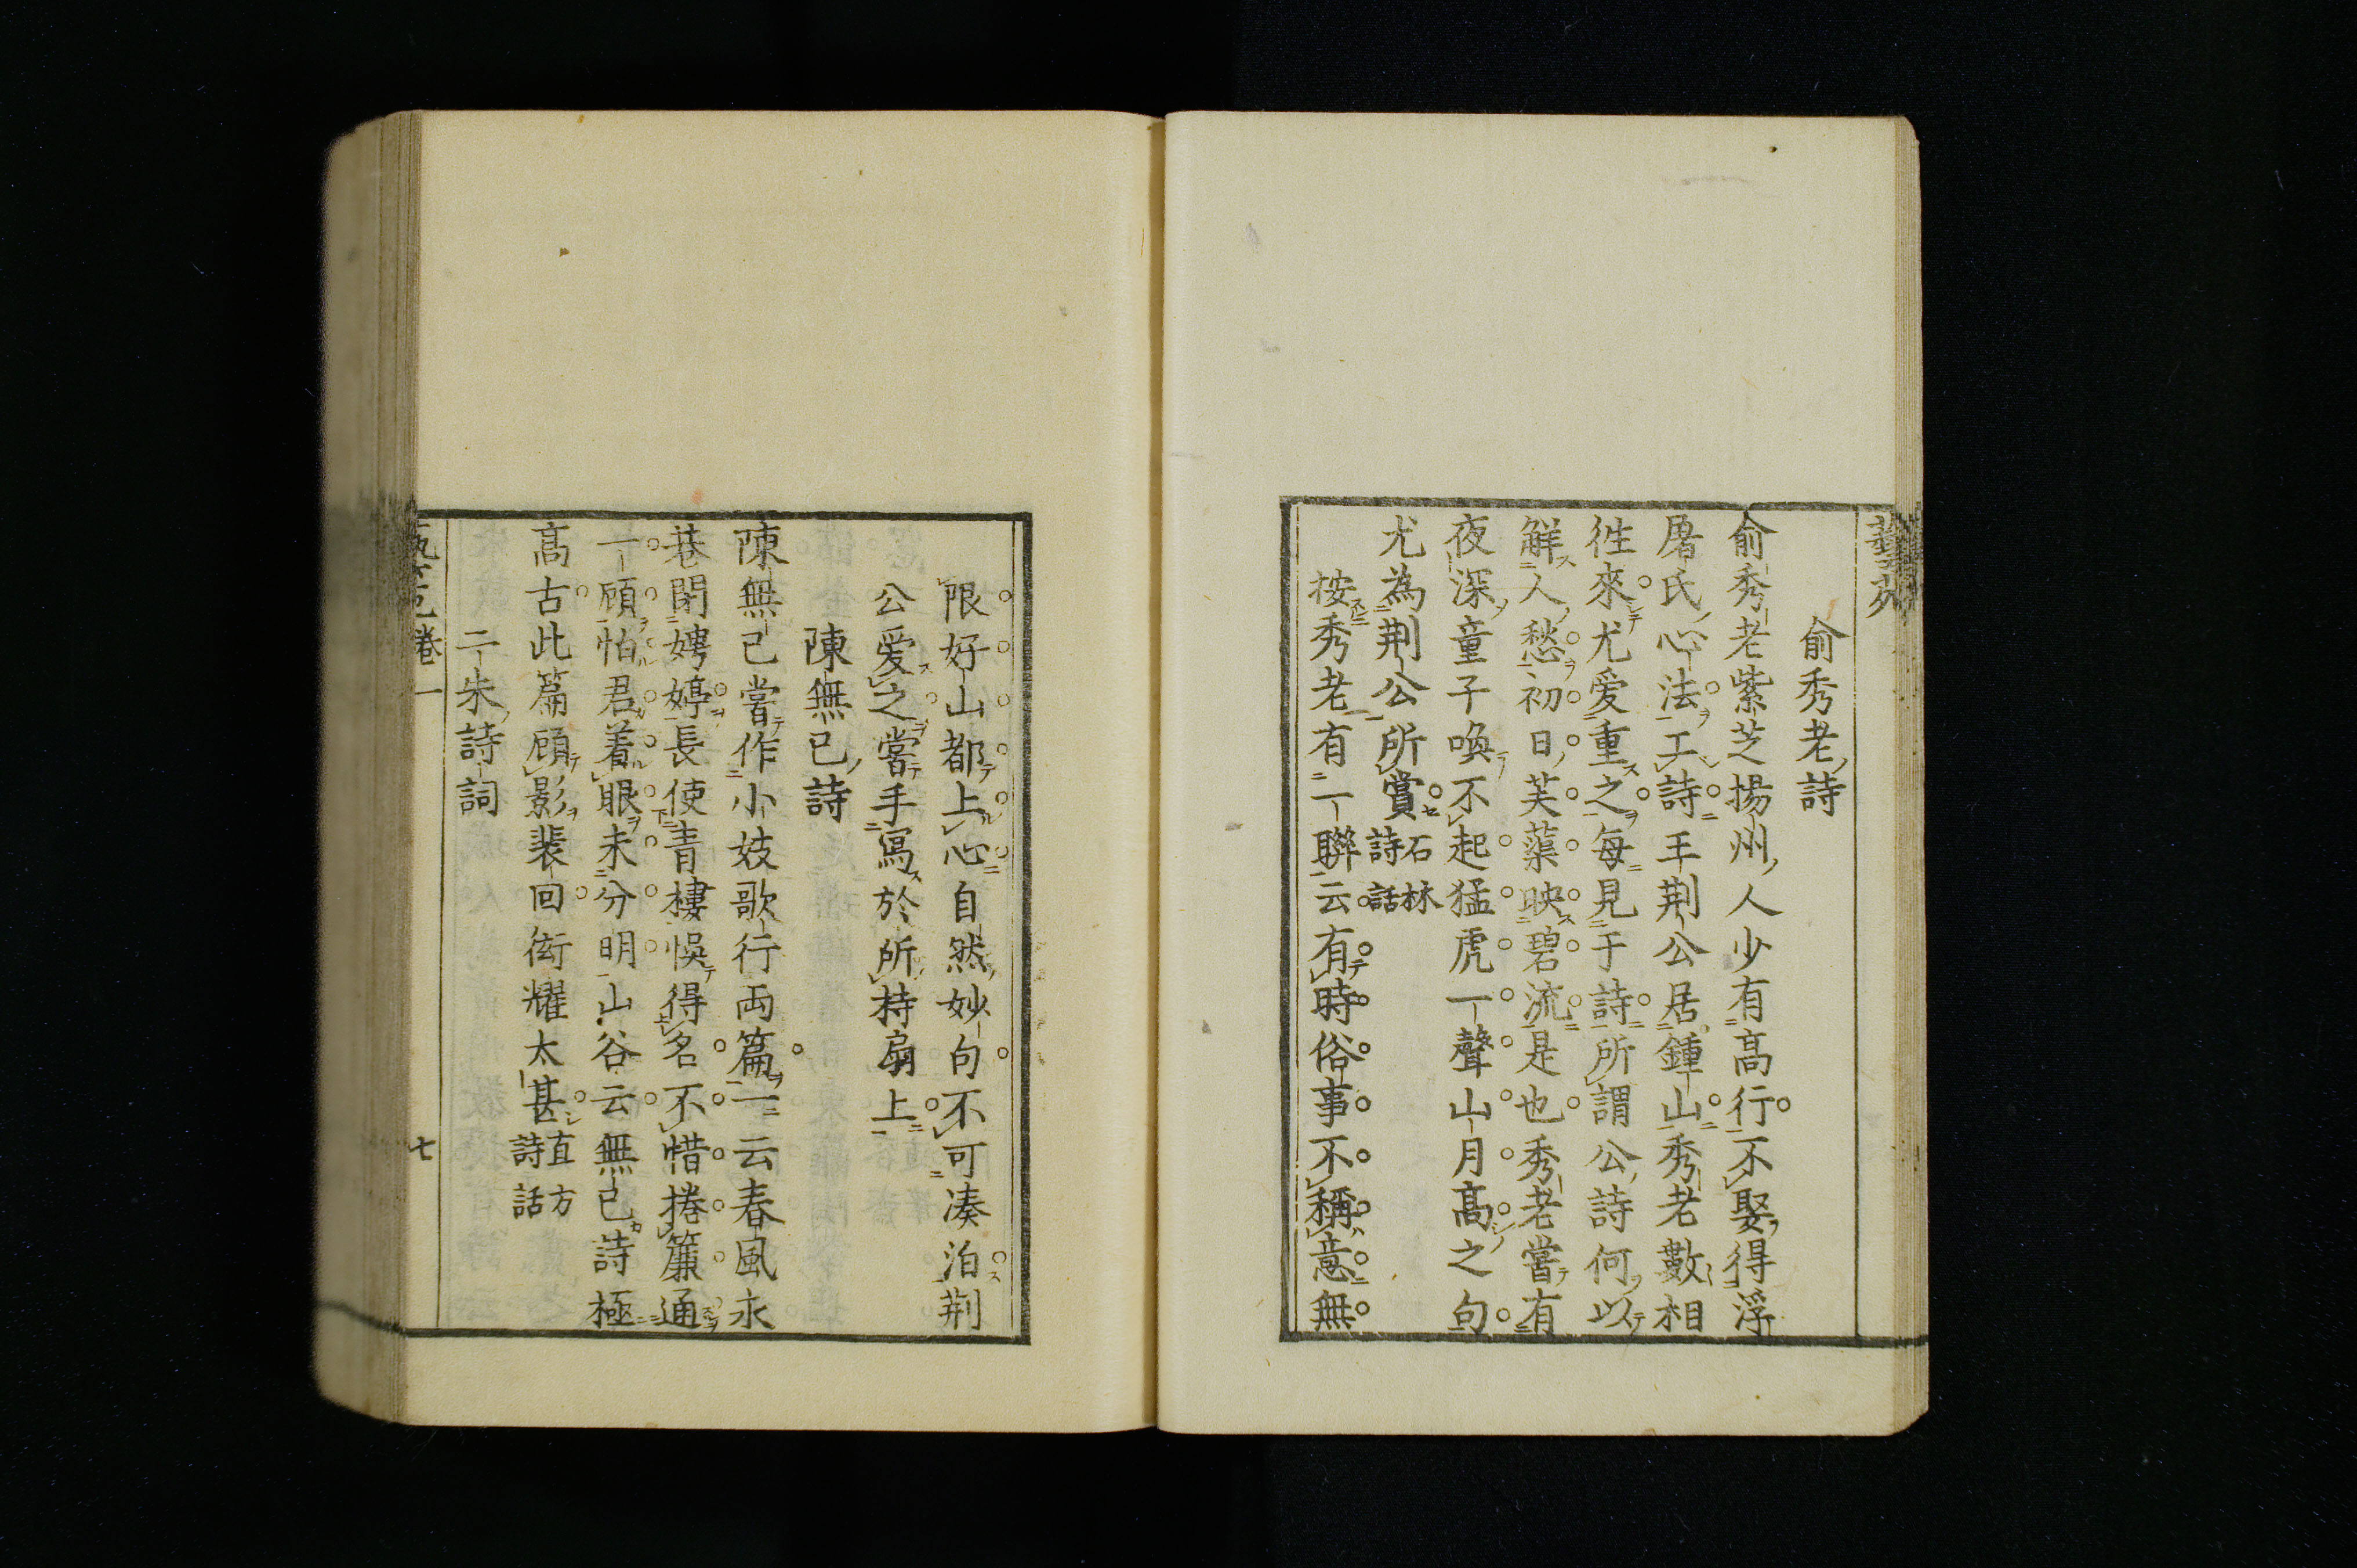 俞秀老詩
俞秀老紫芝揚州人少有高行不娶得浮
屠氏心法工詩王荆公居鍾山秀老數相
徃來尤爱重之每見于詩所謂公詩何以
解人愁初日芙蕖映碧流是也秀老嘗有
夜深童子喚不起猛虎一聲山月高之句
尤為荆公所賞石林詩話
按秀老有一聯云有時俗事不稱意無
限好山都上心自然妙句不可湊泊荆
公爱之嘗手寫於所持扇上
陳無已詩
陳無已嘗作小妓歌行兩篇一云春風永
巷閉娉婷長使青樓悞得名不惜捲簾通
一顧怕君着眼未分明山谷云無已詩極
高古此篇顧影裴回衒耀太甚直方詩話
二朱詩詞
藝苑卷一
七